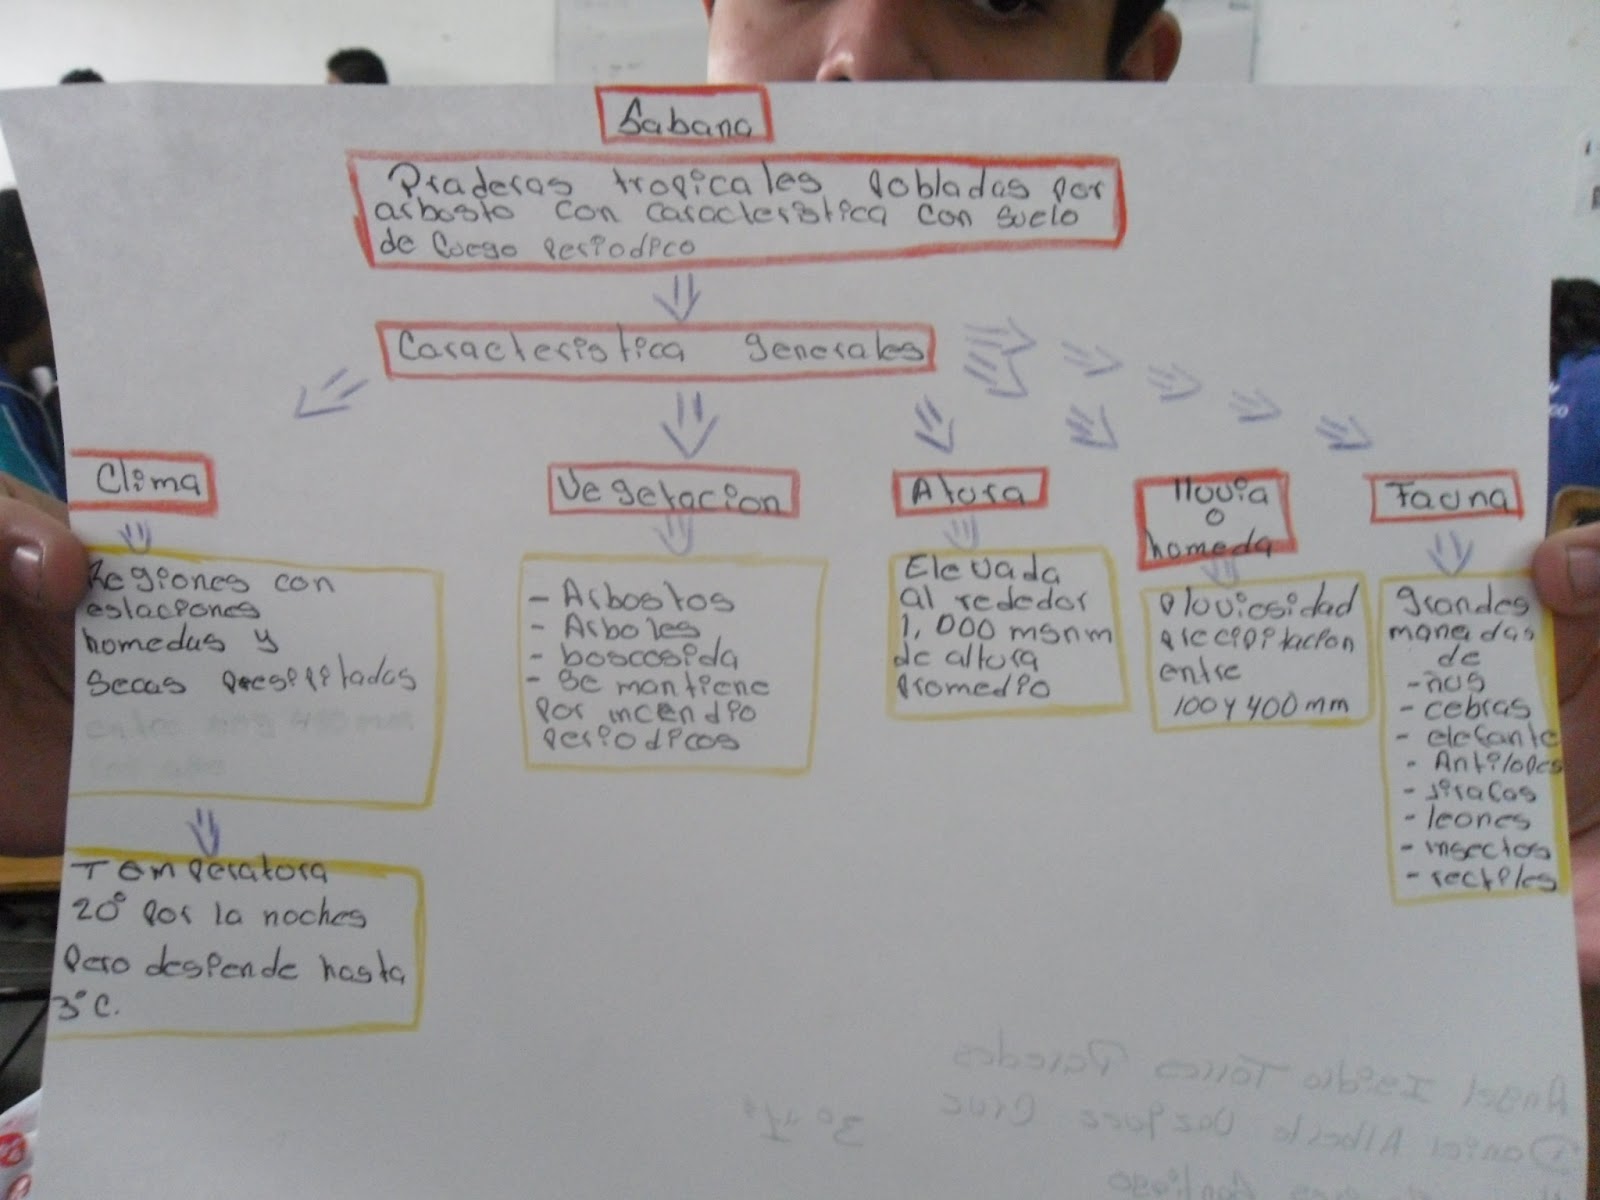 Sabana
Praderas tropicales pobladas por
arbosto con caracteristica con suelo
de fuego periodico
Caracteristica generales
Clima
Regiones con
estaciones
homedas y
secas presipitadas
Temperatora
20° por la noches
pero despende hasta
3°C.
Vegetacion
- Arbostos
- Arboles
- boscosida
- se mantiene
por incendio
periodicos
Atura
Elevada
al rededor
1,000 msnm
de altura
promedio
lluvia
o
homeda
pluviosidad
precipitacion
entre
100 y 400 mm
Fauna
grandes
manadas
de
- ñus
- cebras
- elefante
- Antilopes
- jirafas
- leones
- insectos
- rectiles
Angel Isidro Torres Paredes
Daniel Alberto Vazquez Cruz
3° "I"